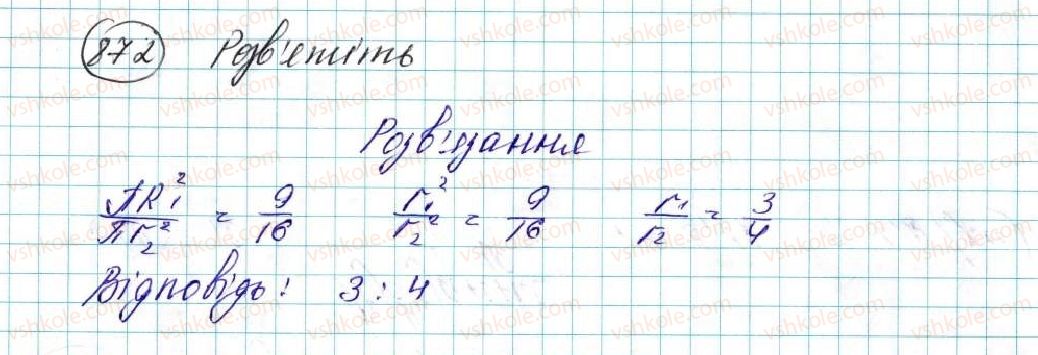 872 Розв'яжіть
Розв'язання
πR₁²/πr₂² = 9/16 r₁²/r₂² = 9/16 r₁/r₂ = 3/4
Відповідь: 3 : 4
vshkole.com